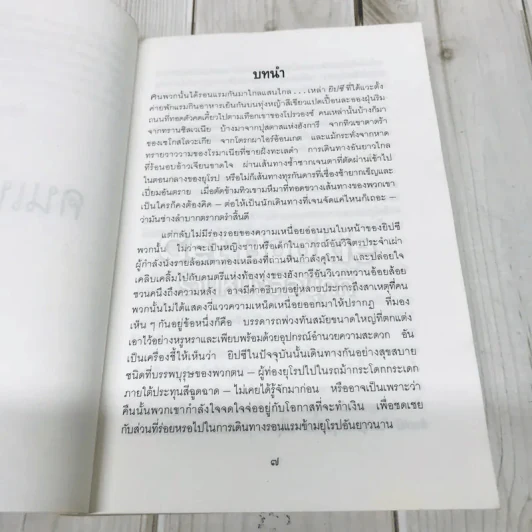 บทนำ
คนพวกนั้นได้รอนแรมกันมาไกลแสนไกล...เหล่า ยิปซี ที่ได้แวะตั้ง
ค่ายพักแรมกินอาหารเย็นกันบนทุ่งหญ้าสีเขียวแปดเปื้อนละอองฝุ่นริม
ถนนที่ทอดตัวคดเคี้ยวไปตามเทือกเขาของโปรวองซ์ คนเหล่านั้นบ้างก็มา
จากทรานซิลเวเนีย บ้างมาจากปุสตาลแห่งฮังการี จากทิวเขาตาตร้า
ของเชโกสโลวะเกีย จากโตรกผาไอร์ออนเกต และแม้กระทั่งจากหาด
ทรายราววามของโรมาเนียที่ชายฝั่งทะเลดำ การเดินทางอันยาวไกล
ที่ร้อนอบอ้าวเจียนขาดใจ ผ่านเส้นทางซ้ำซากเจนตาที่ตัดผ่านเข้าไป
ในตอนกลางของยุโรป หรือไม่ก็เส้นทางทุรกันดารที่เชื่องช้ายากเข็ญและ
เปี่ยมอันตราย เมื่อตัดข้ามทิวเขามหึมาที่ทอดขวางเส้นทางของพวกเขา
เป็นใครก็คงต้องคิด — ต่อให้เป็นนักเดินทางที่เจนจัดแค่ไหนก็เถอะ —
ว่ามันช่างลำบากตรากตรำสิ้นดี
แต่กลับไม่มีร่องรอยของความเหนื่อยอ่อนบนใบหน้าของยิปซี
พวกนั้น ไม่ว่าจะเป็นหญิงชายหรือเด็กในอาภรณ์อันวิจิตรประจำเผ่า
ผู้กำลังนั่งรายล้อมเตาทองเหลืองที่ถ่านหินกำลังคุโชน และปล่อยใจ
เคลิบเคลิ้มไปกับดนตรีแห่งท้องทุ่งของฮังการีอันวิเวกหวานอ้อยสร้อย
ชวนคนึงถึงความหลัง อาจมีคำอธิบายอยู่หลายประการถึงสาเหตุที่คน
พวกนั้นไม่ได้แสดงวี่แววความเหน็ดเหนื่อยออกมาให้ปรากฏ ที่มอง
เห็น ๆ กันอยู่ข้อหนึ่งก็คือ บรรดารถพ่วงทันสมัยขนาดใหญ่ที่ตกแต่ง
เอาไว้อย่างหรูหราและเพียบพร้อมด้วยอุปกรณ์อำนวยความสะดวก อัน
เป็นเครื่องชี้ให้เห็นว่า ยิปซีในปัจจุบันนั้นเดินทางกันอย่างสุขสบาย
ชนิดที่บรรพบุรุษของพวกตน — ผู้ท่องยุโรปไปในรถม้ากระโดกกระเดก
ภายใต้ประทุนสีฉูดฉาด — ไม่เคยได้รู้จักมาก่อน หรืออาจเป็นเพราะว่า
คืนนั้นพวกเขากำลังใจจดใจจ่ออยู่กับโอกาสที่จะทำเงิน เพื่อชดเชย
กับส่วนที่ร่อยหรอไปในการเดินทางรอนแรมข้ามยุโรปอันยาวนาน
๗